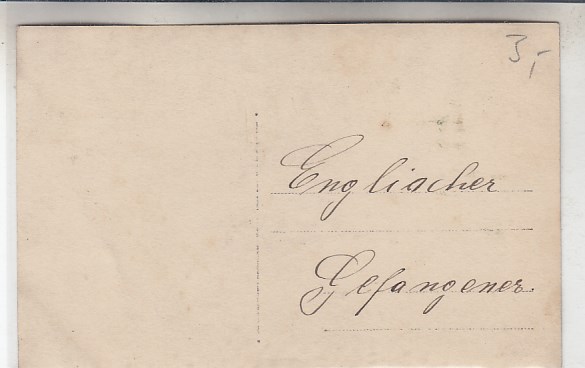 3,-
Englischer
Gefangener.